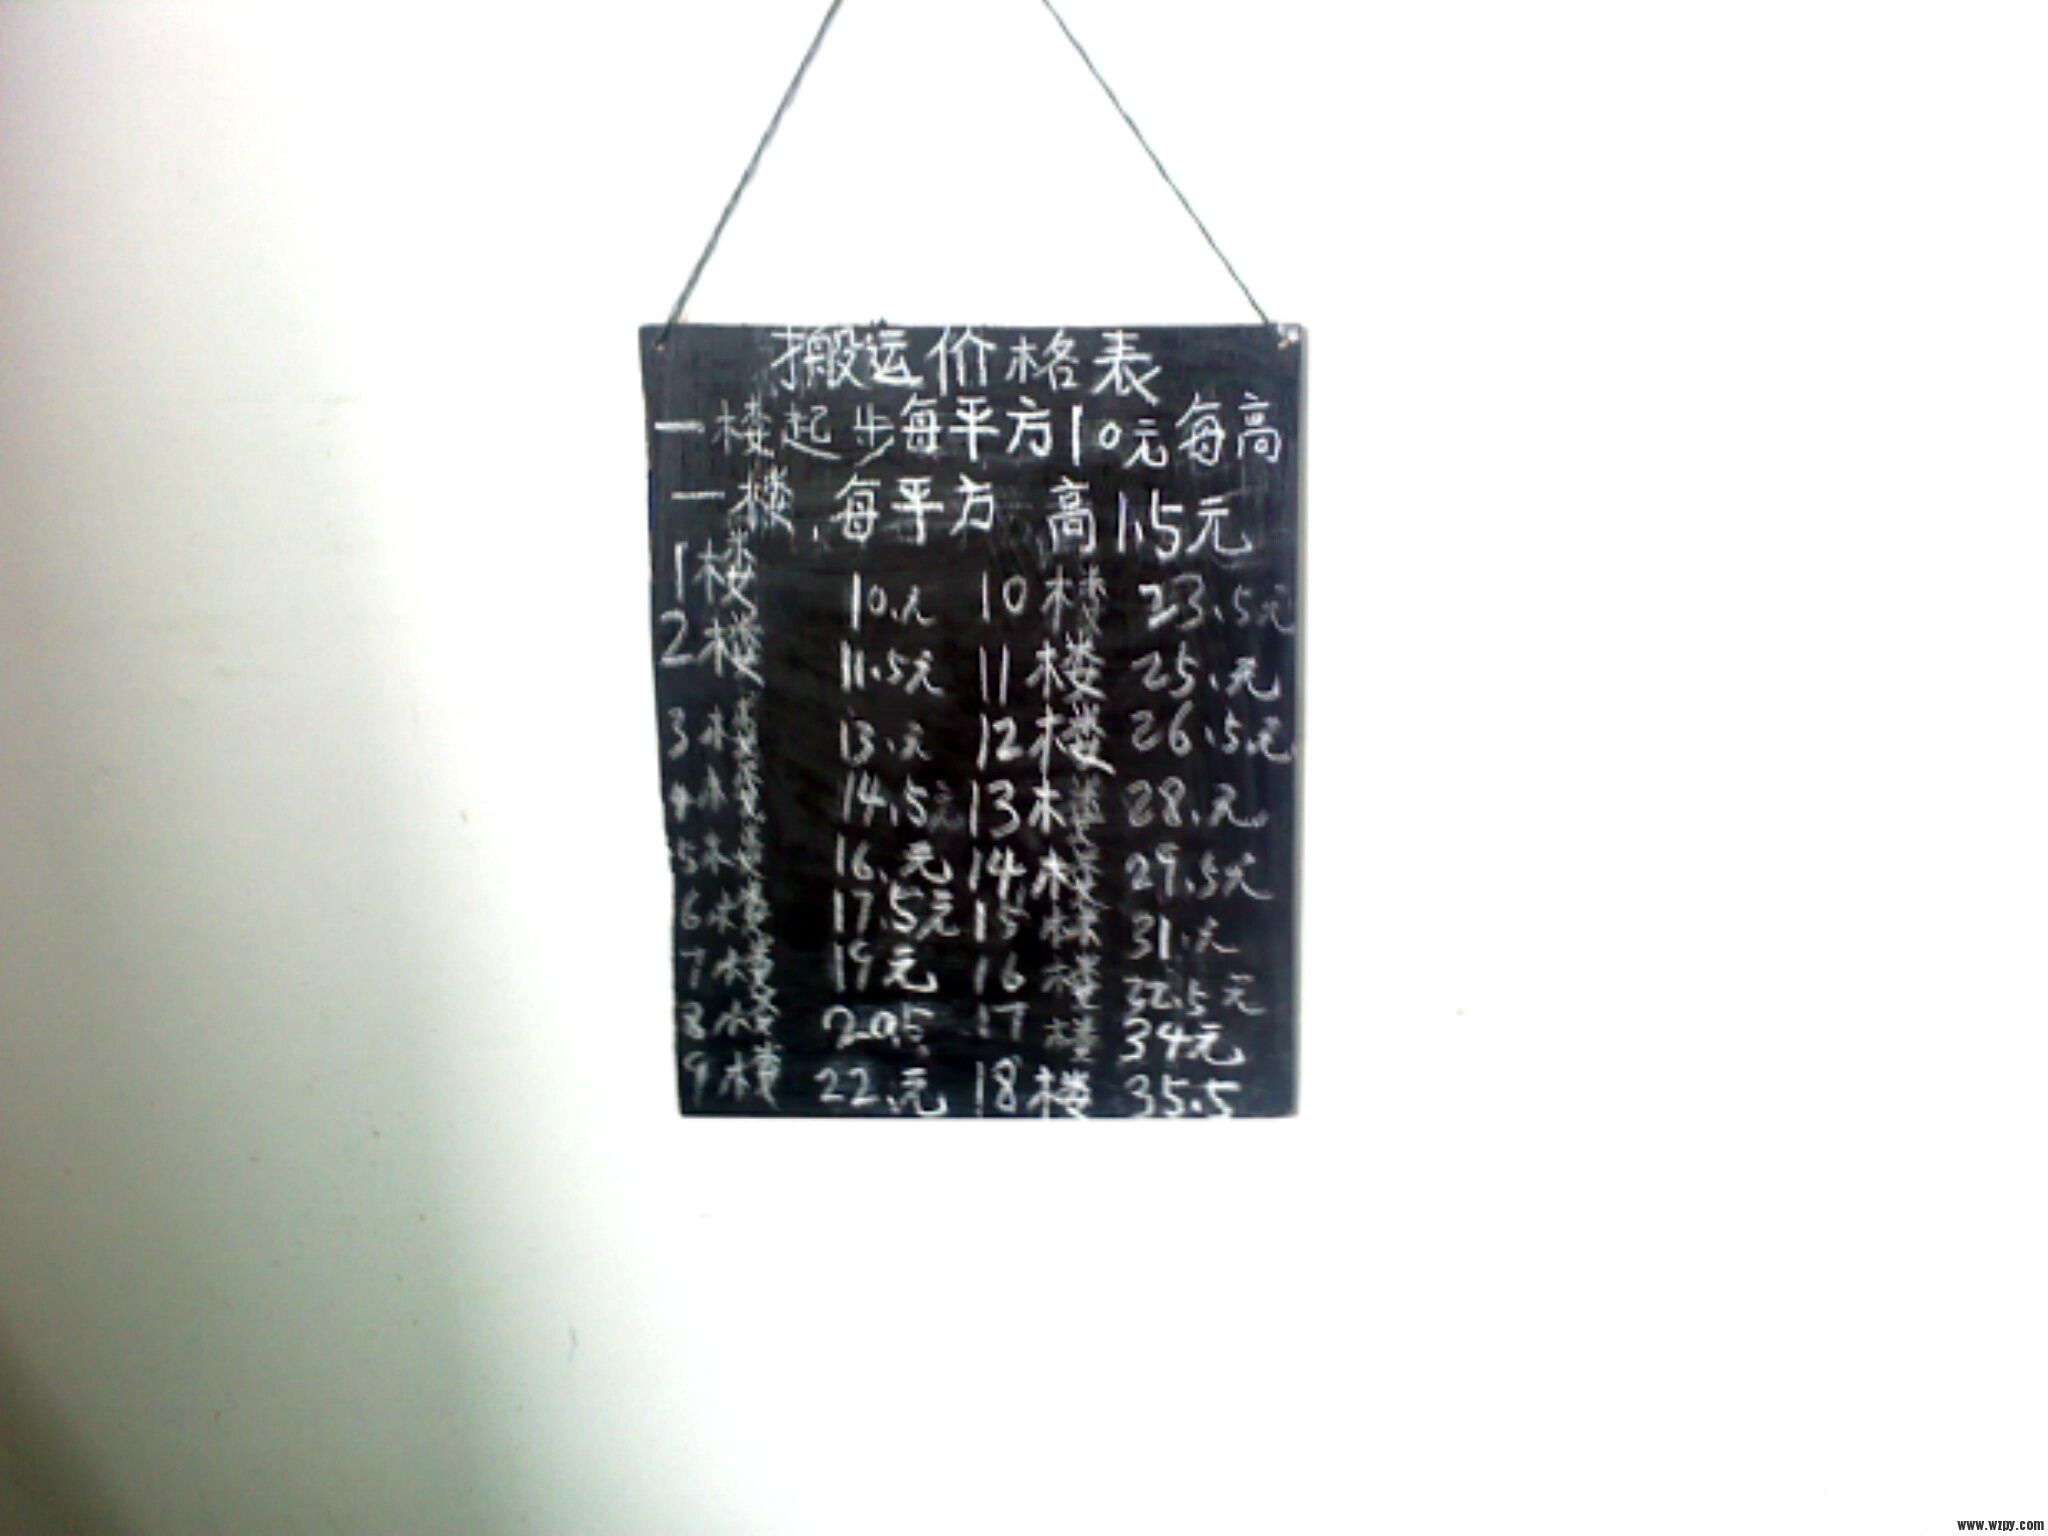 搬运价格表
一楼起步每平方10元每高
一楼,每平方 高1.5元
1楼 10.元 10楼 23.5元
2楼 11.5元 11楼 25.元
3楼 13.元 12楼 26.5元
4楼 14.5元 13楼 28.元
5楼 16.元 14楼 29.5元
6楼 17.5元 15楼 31.元
7楼 19元 16楼 32.5元
8楼 20.5 17楼 34元
9楼 22.元 18楼 35.5
www.wzpy.com